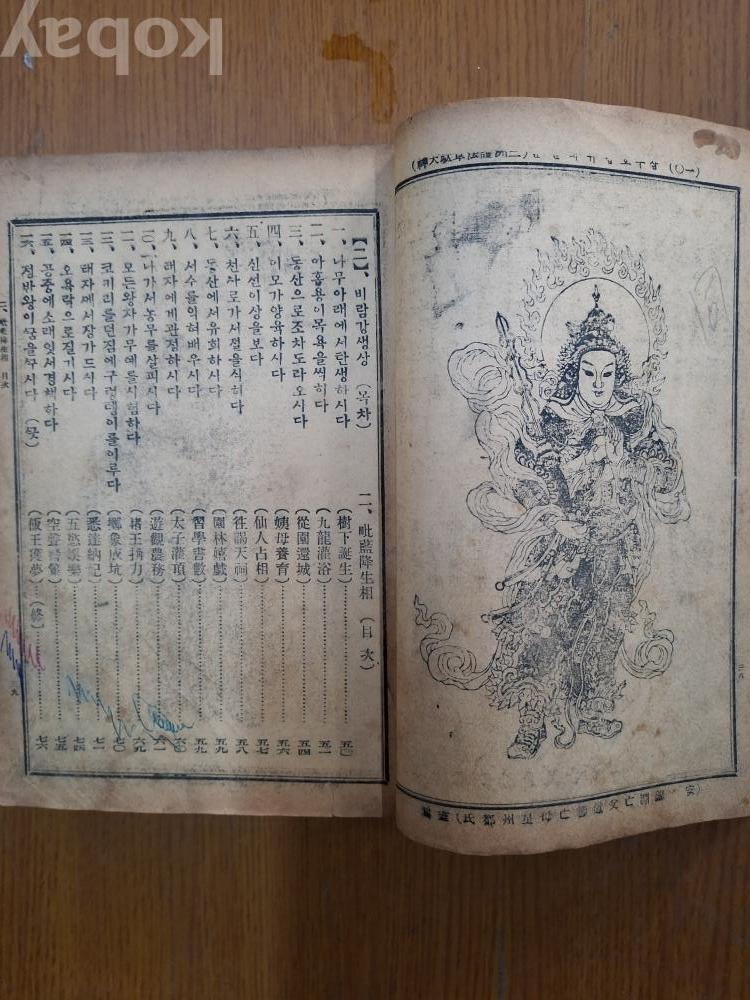 (一〇)
【二】、비람강생상 (목차) 二、毗藍降生相 (目次)
一、나무아래에서탄생하시다 (樹下誕生)………五〇
二、아홉용이목욕을씩히다 (九龍灌浴)………五一
三、동산으로조차도라오시다 (從園還城)………五四
四、이모가양육하시다 (姨母養育)………五六
五、신선이상을보다 (仙人占相)………五七
六、천사로가서졀을식히다 (往謁天祠)………五八
七、동산에서유희하시다 (園林嬉戱)………五九
八、서수를익혀배우시다 (習學書數)………五九
九、태자에게관정하시다 (太子灌頂)………六〇
一〇、나가서농무를살피시다 (遊觀農務)………六一
一一、모든왕자가무예를시험하다 (諸王捔力)………六九
一二、코끼리를던짐에구렁텅이를이루다 (擲象成坑)………七〇
一三、태자께서장가드시다 (悉達納妃)………七一
一四、오욕락으로질기시다 (五慾娛樂)………七四
一五、공중에소래잇서경책하다 (空聲警策)………七五
一六、정반왕이꿈을꾸시다 (끗) (飯王獲夢)…(終)………七六
目次 九
kobay